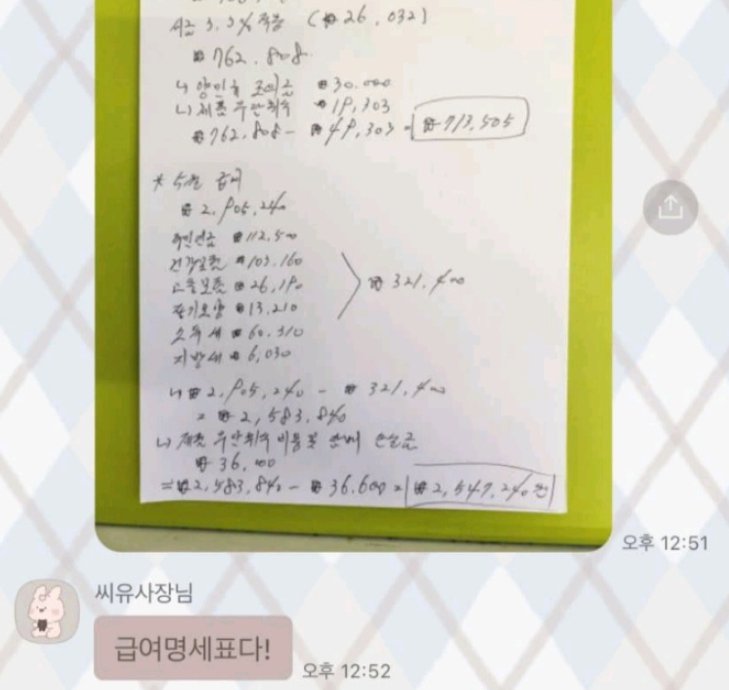 시급 3.3% 적용 (₩26,032)
₩762,808
↳ 양민호 ₩30,000
↳ 제품 무단취식 ₩19,303
₩762,808 - ₩49,303 = ₩713,505
* 5월 급여
₩2,905,240
국민연금 ₩112,500
건강보험 ₩103,160
고용보험 ₩26,190
장기요양 ₩13,210
₩321,400
소득세 ₩60,310
지방세 ₩6,030
↳ ₩2,905,240 - ₩321,400
= ₩2,583,840
↳ 제품 무단취식 비용 및
₩36,600
= ₩2,583,840 - ₩36,600 = ₩2,547,240원
오후 12:51
씨유사장님
급여명세표다!
오후 12:52